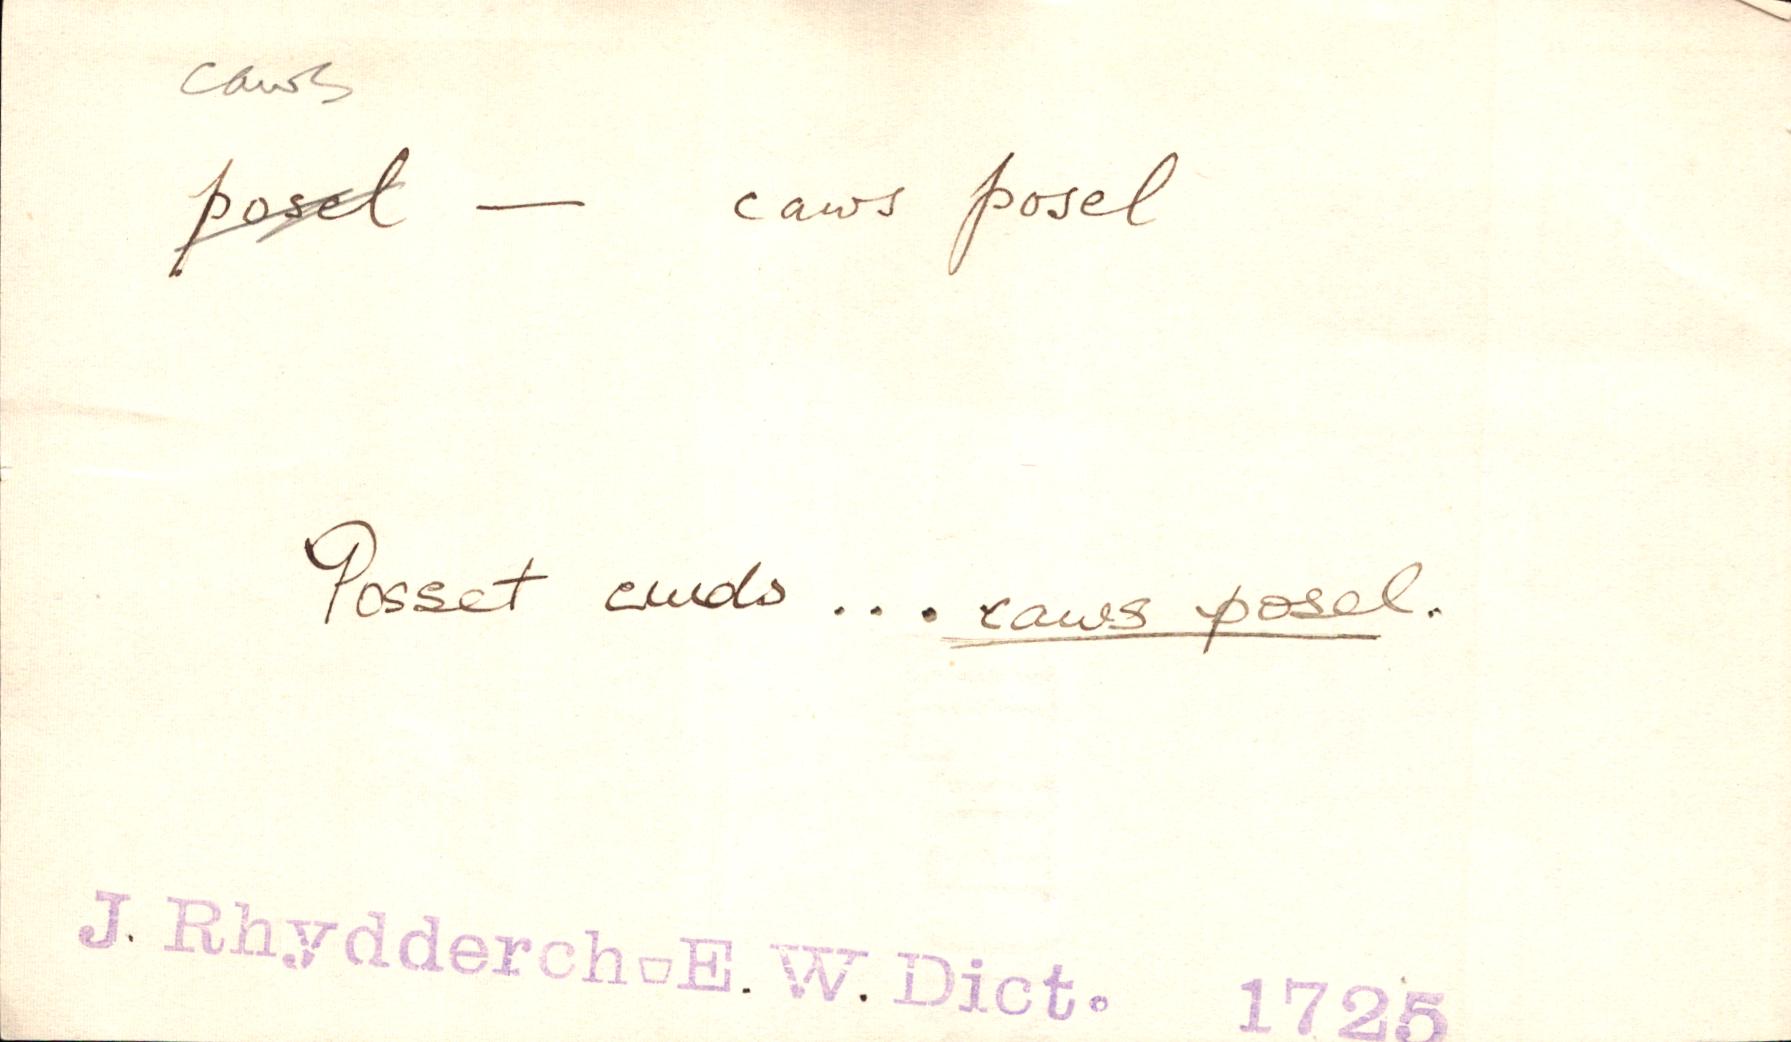 caws
posel — caws posel
Posset curds ... caws posel.
J. Rhydderch. E. W. Dict. 1725